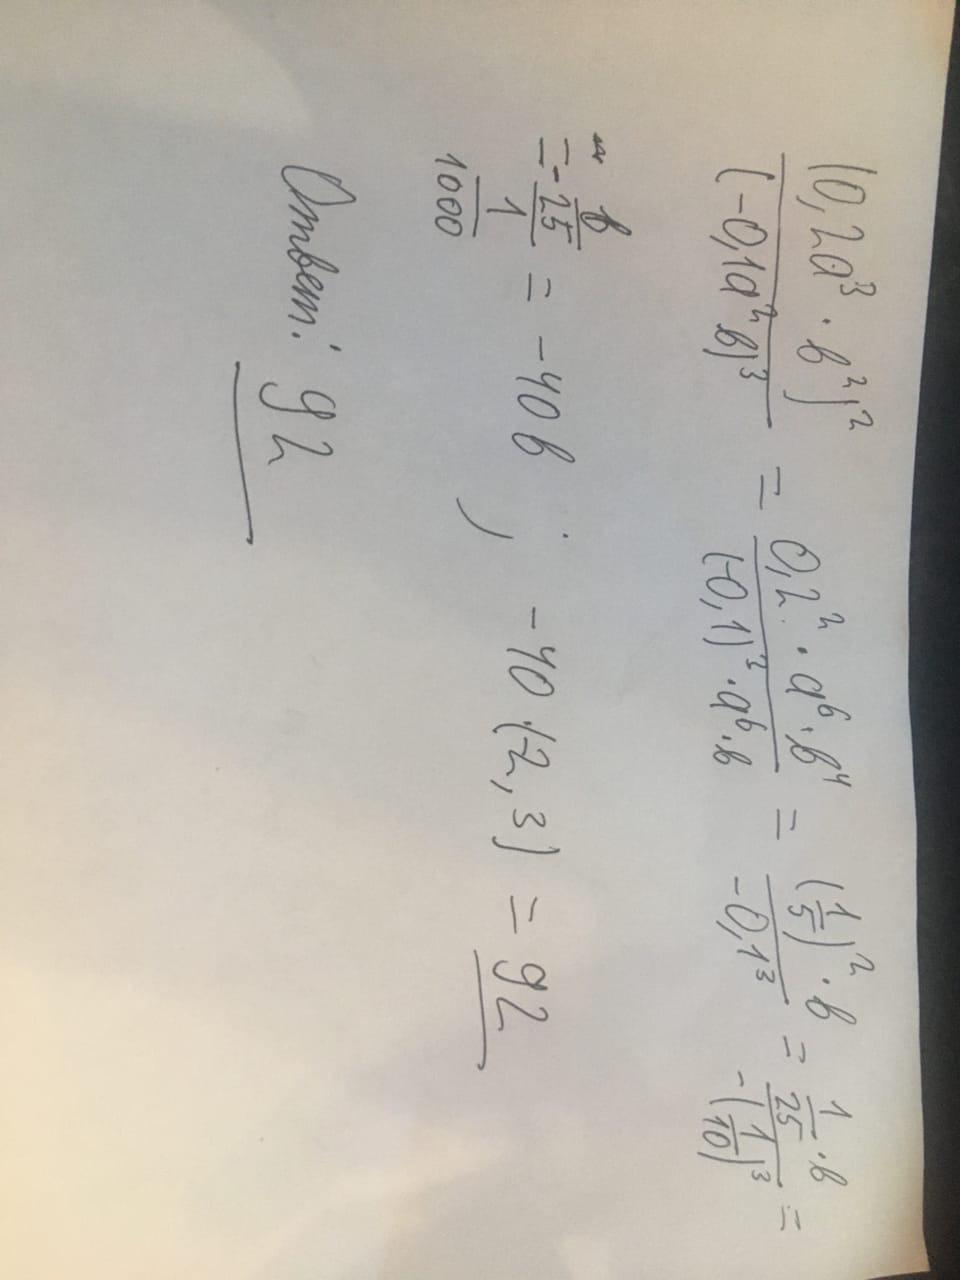 (0,2a³ · b²)² / (-0,1a²b)³ = 0,2² · a⁶ · b⁴ / (-0,1)³ · a⁶ · b = (1/5)² · b / -0,1³ = 1/25 · b / -(1/10)³ =
= - b/25 / 1/1000 = -40b ; -40 · (-2,3) = 92
Ответ: 92